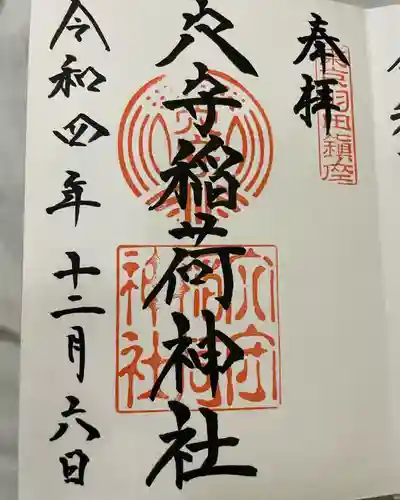 奉拝
東京羽田鎮座
穴守稲荷神社
穴守稲荷神社
令和四年十二月六日